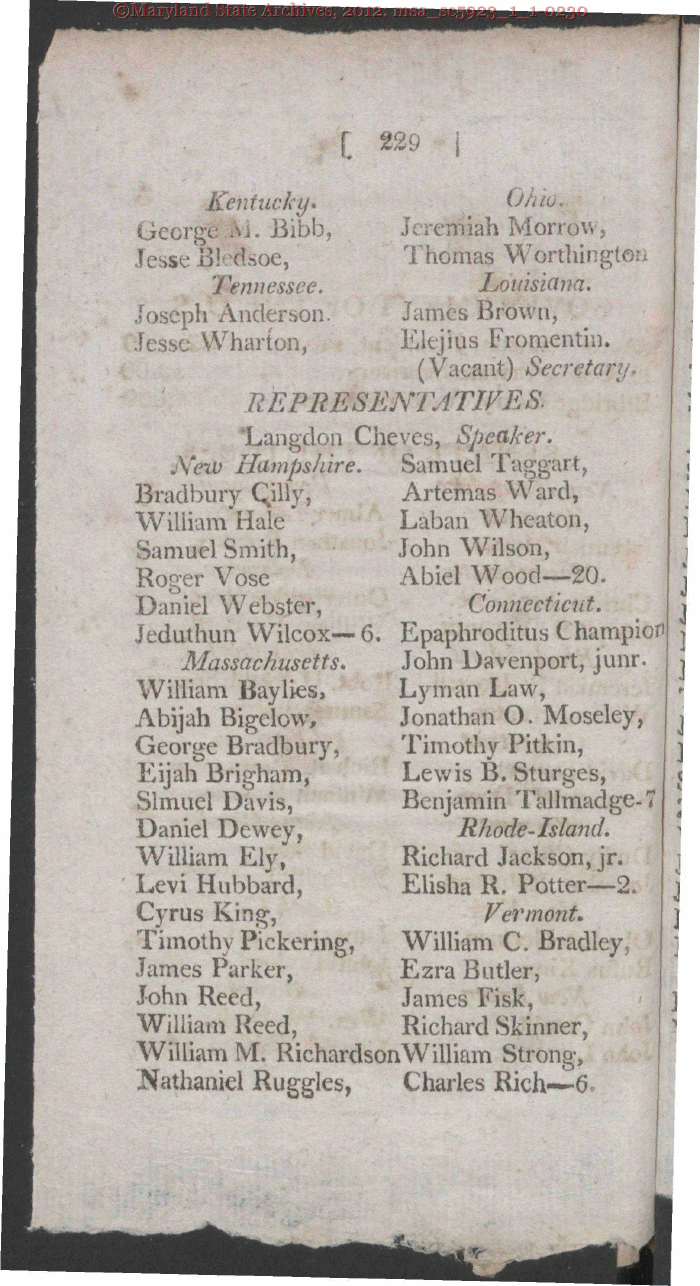 ©Maryland State Archives, 2012. msa_sc5923_1_1-0230
[ 229 ]
Kentucky.
George M. Bibb,
Jesse Bledsoe,
Tennessee.
Joseph Anderson.
Jesse Wharton,
Ohio.
Jeremiah Morrow,
Thomas Worthington
Louisiana.
James Brown,
Elejius Fromentin.
(Vacant) Secretary.
REPRESENTATIVES.
Langdon Cheves, Speaker.
New Hampshire.
Bradbury Cilly,
William Hale
Samuel Smith,
Roger Vose
Daniel Webster,
Jeduthun Wilcox—6.
Massachusetts.
William Baylies,
Abijah Bigelow,
George Bradbury,
Eijah Brigham,
Simuel Davis,
Daniel Dewey,
William Ely,
Levi Hubbard,
Cyrus King,
Timothy Pickering,
James Parker,
John Reed,
William Reed,
William M. Richardson
Nathaniel Ruggles,
Samuel Taggart,
Artemas Ward,
Laban Wheaton,
John Wilson,
Abiel Wood—20.
Connecticut.
Epaphroditus Champion
John Davenport, junr.
Lyman Law,
Jonathan O. Moseley,
Timothy Pitkin,
Lewis B. Sturges,
Benjamin Tallmadge-7
Rhode-Island.
Richard Jackson, jr.
Elisha R. Potter—2.
Vermont.
William C. Bradley,
Ezra Butler,
James Fisk,
Richard Skinner,
William Strong,
Charles Rich—6.